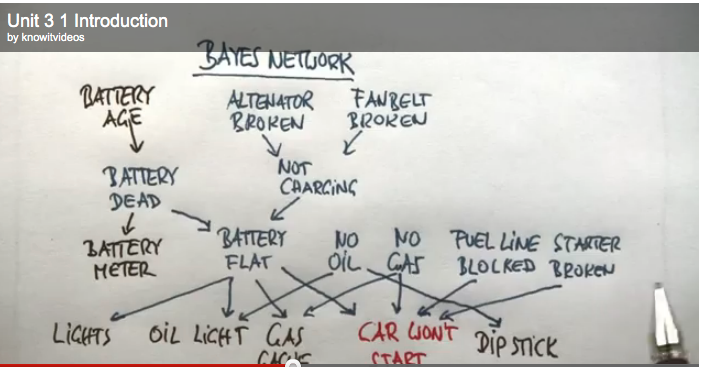 Unit 3 1 Introduction
by knowitvideos
BAYES NETWORK
BATTERY
AGE
ALTENATOR
BROKEN
FANBELT
BROKEN
BATTERY
DEAD
NOT
CHARGING
BATTERY
METER
BATTERY
FLAT
NO
OIL
NO
GAS
FUEL LINE
BLOCKED
STARTER
BROKEN
LIGHTS
OIL LIGHT
GAS
CAR WON'T
START
DIP STICK